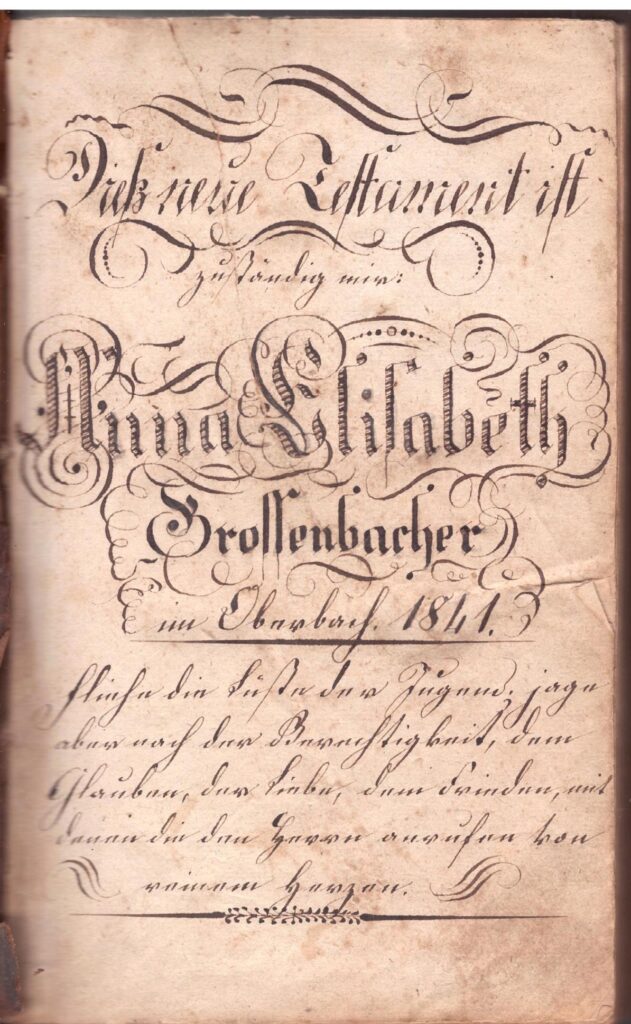 Dieß neue Testament ist
zuständig mir:
Anna Elisabeth
Grossenbacher
im Oberbach. 1841.
fliehe die Lüste der Jugend; jage
aber nach der Gerechtigkeit, dem
Glauben, der Liebe, dem Frieden, mit
denen die den Herrn anrufen von
reinem Herzen.